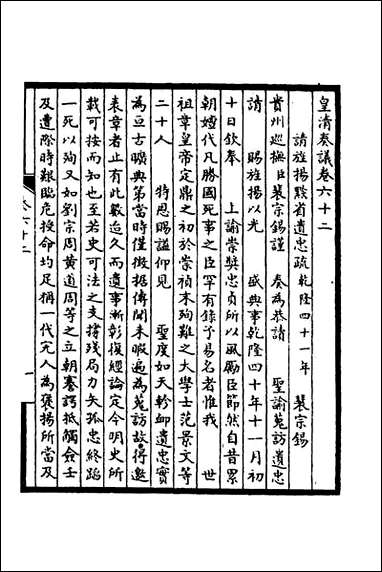 皇清奏議卷六十二
請旌揚黔省遺忠疏乾隆四十一年 裴宗錫
貴州巡撫臣裴宗錫謹 奏為恭請 聖諭蒐訪遺忠
請 賜旌揚以光 盛典事乾隆四十年十一月初
十日欽奉 上諭崇獎忠貞所以風勵臣節然自昔累
朝嬗代凡勝國死事之臣罕有錄予易名者惟我 世
祖章皇帝定鼎之初於崇禎末殉難之大學士范景文等
二十人 特恩賜謚仰見 聖度如天軫卹遺忠實
為亘古曠典第當時僅徵據傳聞未暇遍為蒐訪故得邀
表章者止有此數迨久而遺事漸彰復經論定今明史所
載可按而知也至若史可法之支撐殘局力矢孤忠終蹈
一死以殉又如劉宗周黃道周等之立朝謇諤抵觸僉壬
及遭際時艱臨危授命均足稱一代完人為褒揚所當及
卷六十二
一